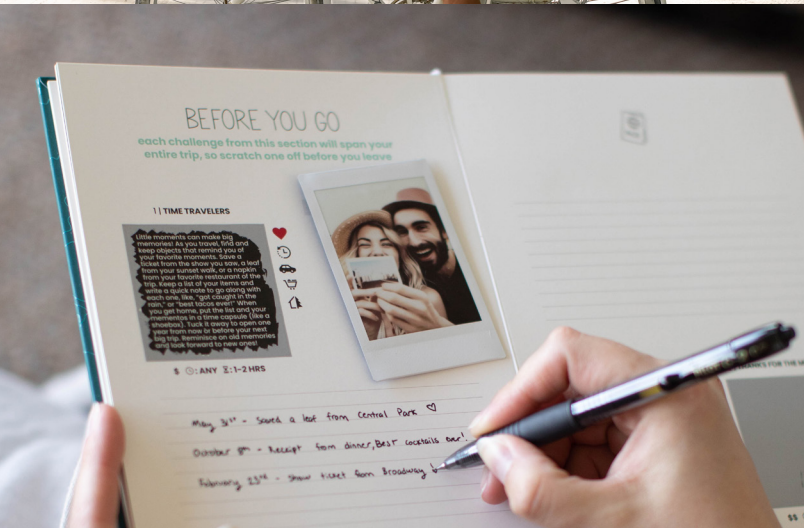 BEFORE YOU GO
each challenge from this section will span your
entire trip, so scratch one off before you leave
1 | TIME TRAVELERS
Little moments can make big
memories! As you travel, find and
keep objects that remind you of
your favorite moments. Save a
ticket from the show you saw, a leaf
from your sunset walk, or a napkin
from your favorite restaurant of the
trip. Keep a list of your items and
write a quick note to go along with
each one, like, "got caught in the
rain," or "best tacos ever!" When
you get home, put the list and your
mementos in a time capsule (like a
shoebox). Tuck it away to open one
year from now or before your next
big trip. Reminisce on old memories
and look forward to new ones!
$ : ANY : 1-2 HRS
May 31st - Saved a leaf from Central Park ♡
October 8th - Receipt from dinner, Best cocktails ever!
February 23rd - Show ticket from Broadway
FOR THE M
$$